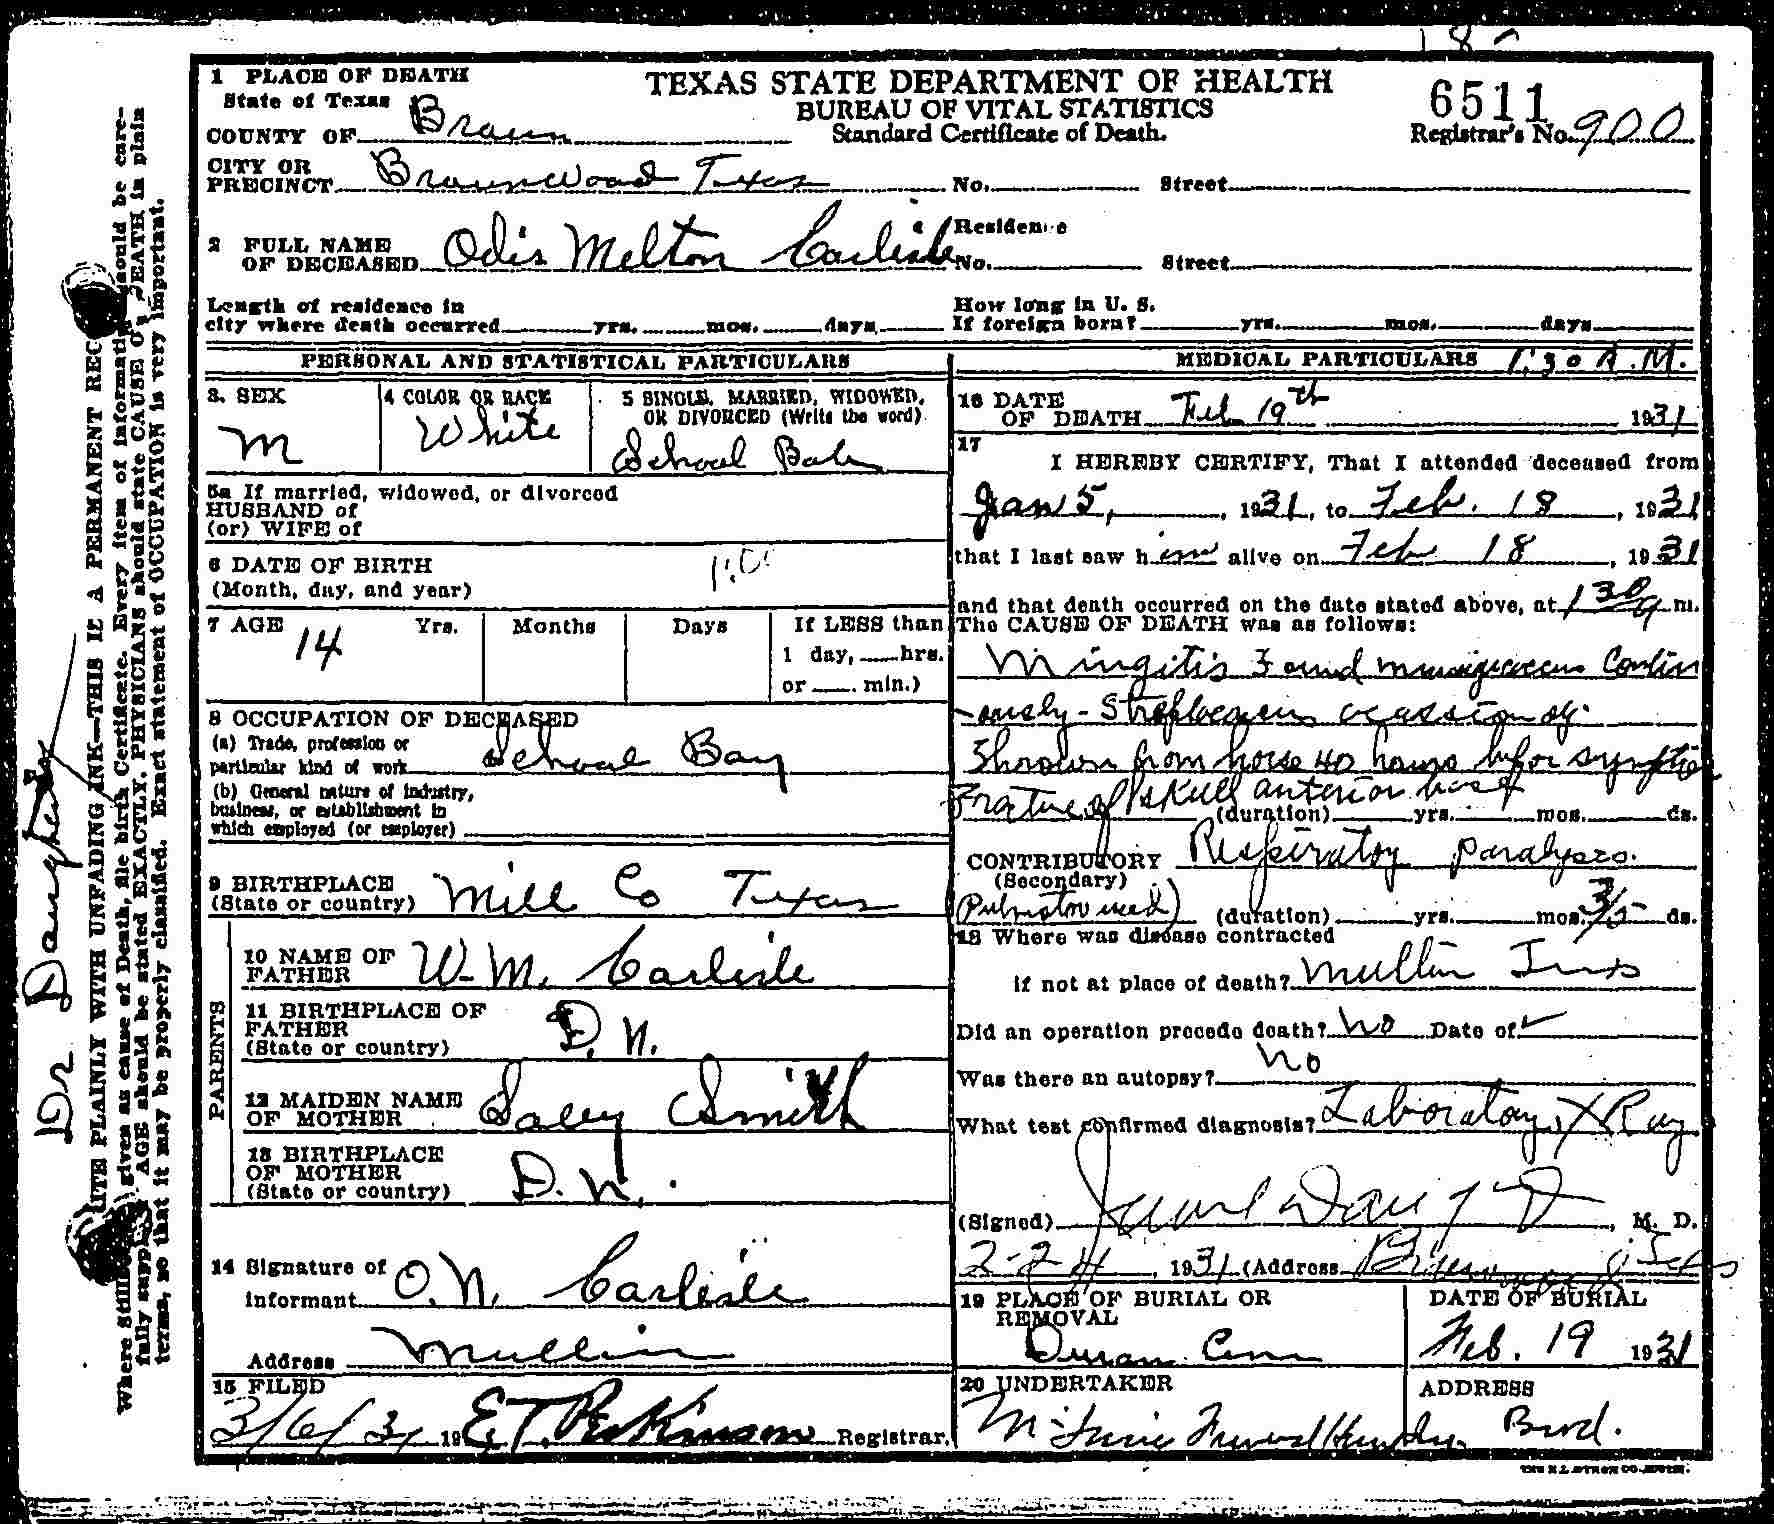 18
1 PLACE OF DEATH
State of Texas
COUNTY OF Brown
CITY OR PRECINCT Brownwood Texas No. Street
TEXAS STATE DEPARTMENT OF HEALTH
BUREAU OF VITAL STATISTICS
Standard Certificate of Death.
6511
Registrar's No. 900
2 FULL NAME OF DECEASED Odis Melton Carlisle
Residence
No. Street
Length of residence in city where death occurred yrs. mos. days.
How long in U. S. If foreign born? yrs. mos. days
PERSONAL AND STATISTICAL PARTICULARS
3. SEX
M
4 COLOR OR RACE
White
5 SINGLE, MARRIED, WIDOWED, OR DIVORCED (Write the word)
School
5a If married, widowed, or divorced
HUSBAND of
(or) WIFE of
6 DATE OF BIRTH
(Month, day, and year)
7 AGE 14 Yrs. Months Days If LESS than
1 day, hrs.
or min.)
8 OCCUPATION OF DECEASED
(a) Trade, profession or
particular kind of work School Boy
(b) General nature of industry,
business, or establishment in
which employed (or employer)
9 BIRTHPLACE
(State or country) Mill Co Texas
PARENTS
10 NAME OF FATHER W. M. Carlisle
11 BIRTHPLACE OF FATHER
(State or country) D. N.
12 MAIDEN NAME OF MOTHER Smith
13 BIRTHPLACE OF MOTHER
(State or country) D. N.
14 Signature of informant O. N. Carlisle
Address Mullin
15 FILED
3/6/31 19 E. T. Registrar.
MEDICAL PARTICULARS 1:30 A.M.
16 DATE OF DEATH Feb 19th 1931
17
I HEREBY CERTIFY, That I attended deceased from
Jan 5, 1931, to Feb. 18, 1931
that I last saw him alive on Feb 18, 1931
and that death occurred on the date stated above, at 130 a m.
The CAUSE OF DEATH was as follows:
Mingitis Found Contin
-ously - Streptococcus
Thrown from horse 40 hours befor
Fracture of skull anterior base
(duration) yrs. mos. ds.
CONTRIBUTORY Respiratory paralysis.
(Secondary)
(Pulmotor used) (duration) yrs. mos. ds.
18 Where was disease contracted
if not at place of death? Mullin
Did an operation precede death? No Date of
Was there an autopsy? No
What test confirmed diagnosis? Laboratory, X Ray
(Signed) M. D.
2-24, 1931 (Address
19 PLACE OF BURIAL OR REMOVAL
Cem
DATE OF BURIAL
Feb. 19 1931
20 UNDERTAKER
ADDRESS
Bwd.
Dr Daugherty
WRITE PLAINLY WITH UNFADING INK—THIS IS A PERMANENT REC
given as cause of Death, file birth Certificate. Every item of information should be care-
AGE should be stated EXACTLY. PHYSICIANS should state CAUSE OF DEATH in plain
terms, so that it may be properly classified. Exact statement of OCCUPATION is very important.